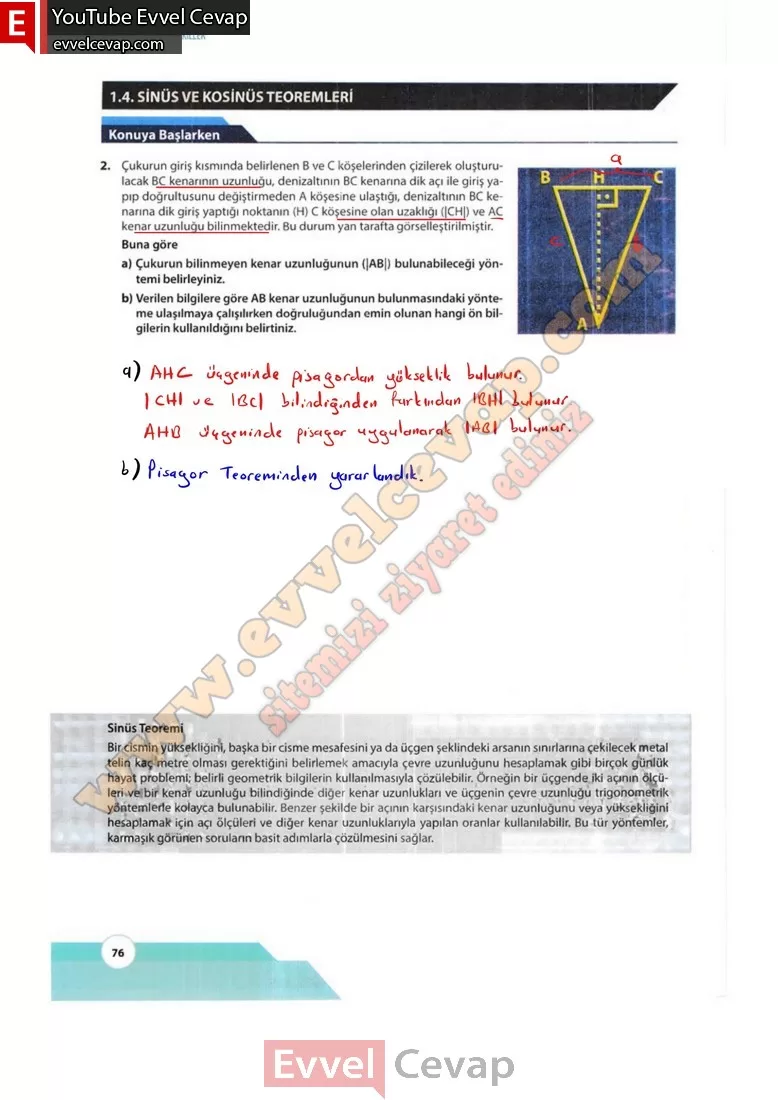 E YouTube Evvel Cevap
evvelcevap.com
1.4. SİNÜS VE KOSİNÜS TEOREMLERİ
Konuya Başlarken
2. Çukurun giriş kısmında belirlenen B ve C köşelerinden çizilerek oluşturu-
lacak BC kenarının uzunluğu, denizaltının BC kenarına dik açı ile giriş ya-
pıp doğrultusunu değiştirmeden A köşesine ulaştığı, denizaltının BC ke-
narına dik giriş yaptığı noktanın (H) C köşesine olan uzaklığı (|CH|) ve AC
kenar uzunluğu bilinmektedir. Bu durum yan tarafta görselleştirilmiştir.
Buna göre
a) Çukurun bilinmeyen kenar uzunluğunun (|AB|) bulunabileceği yön-
temi belirleyiniz.
b) Verilen bilgilere göre AB kenar uzunluğunun bulunmasındaki yönte-
me ulaşmaya çalışılırken doğruluğundan emin olunan hangi ön bil-
gilerin kullanıldığını belirtiniz.
a
B H C
c
A
a) AHC üçgeninde pisagordan yükseklik bulunur.
|CH| ve |BC| bilindiğinden farkından |BH| bulunur
AHB üçgeninde pisagor uygulanarak |AB| bulunur.
b) Pisagor Teoreminden yararlandık.
www.evvelcevap.com
sitemizi ziyaret ediniz
Sinüs Teoremi
Bir cismin yüksekliğini, başka bir cisme mesafesini ya da üçgen şeklindeki arsanın sınırlarına çekilecek metal
telin kaç metre olması gerektiğini belirlemek amacıyla çevre uzunluğunu hesaplamak gibi birçok günlük
hayat problemi; belirli geometrik bilgilerin kullanılmasıyla çözülebilir. Örneğin bir üçgende iki açının ölçü-
leri ve bir kenar uzunluğu bilindiğinde diğer kenar uzunlukları ve üçgenin çevre uzunluğu trigonometrik
yöntemlerle kolayca bulunabilir. Benzer şekilde bir açının karşısındaki kenar uzunluğunu veya yüksekliğini
hesaplamak için açı ölçüleri ve diğer kenar uzunluklarıyla yapılan oranlar kullanılabilir. Bu tür yöntemler,
karmaşık görünen soruların basit adımlarla çözülmesini sağlar.
76
Evvel Cevap